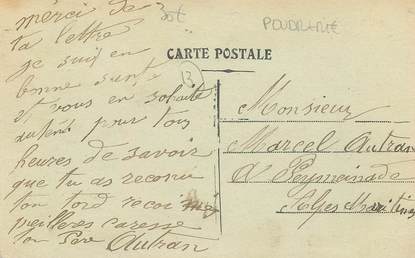 merci de
ta lettre
je suis en
bonne sante
et vous en souhaite
autent pour tous
heures de savoir
que tu as reconu
ton tord recoi mes
meilleres caresse
ton Pere Autran
POUDRERIE
CARTE POSTALE
13
Monsieur
Marcel Autran
a Peymeinade
Alpes Maritimes